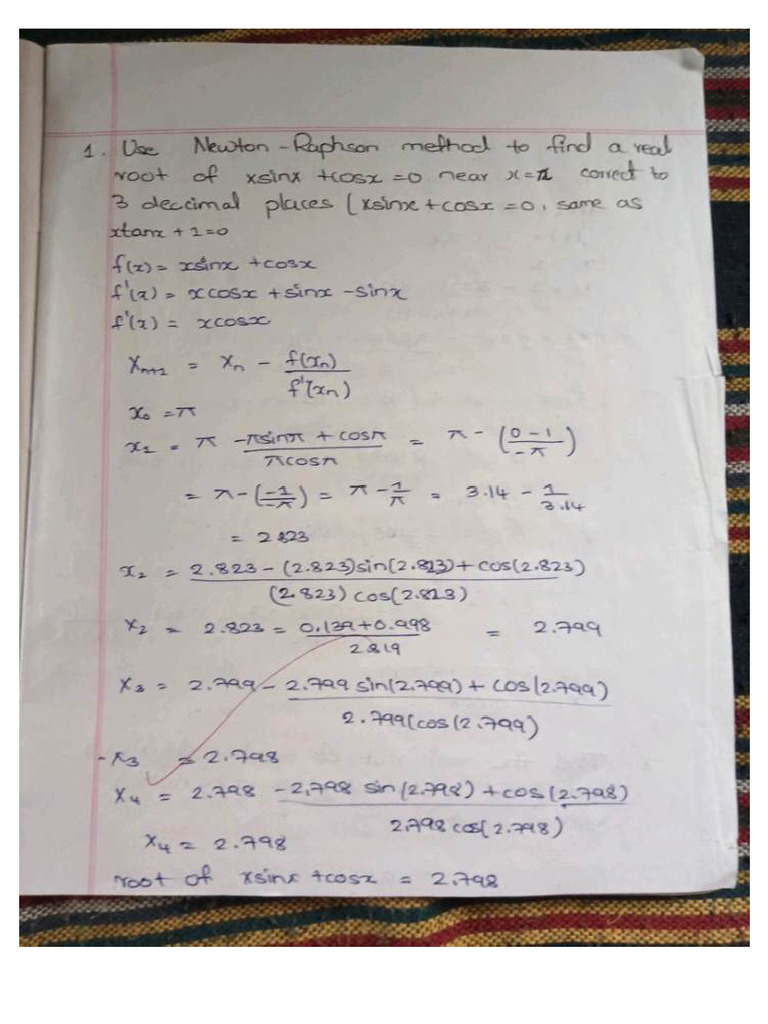 1. Use Newton-Raphson method to find a real
root of xsinx +cosx =0 near x=π correct to
3 deccimal places (xsinx+cosx =0, same as
xtanx + 1=0
f(x) = xsinx +cosx
f'(x) = xcosx +sinx -sinx
f'(x) = xcosx
Xn+1 = Xn - f(xn)/f'(xn)
x0 =π
x1 = π -πsinπ + cosπ/πcosπ = π - (0-1/-π)
= π-(-1/-π) = π-1/π = 3.14 - 1/3.14
= 2.823
x2 = 2.823 - (2.823)sin(2.823)+ cos(2.823)/(2.823) cos(2.823)
x2 = 2.823 = 0.139+0.998/2.819 = 2.799
x3 = 2.799 - 2.799 sin(2.799) + cos(2.799)/2.799(cos(2.799)
-x3 = 2.798
x4 = 2.798 -2.798 sin(2.798) +cos(2.798)/2.798 cos(2.798)
x4 = 2.798
root of xsinx +cosx = 2.798